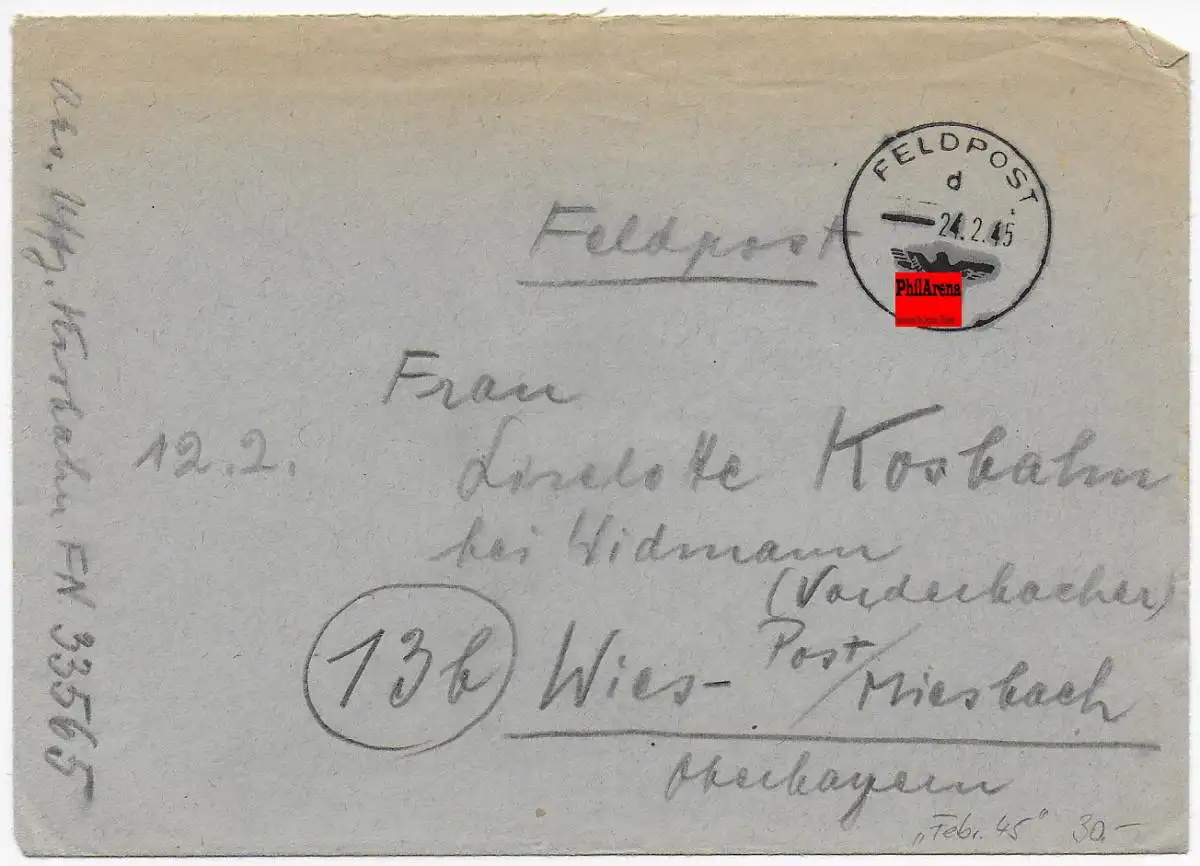 FELDPOST
d
24.2.45
PhilArena
Feldpost
Frau
12.2.
Liselotte Kosbahn
bei Widmann
(Vorderbacher)
13b Wies- Post/Miesbach
Oberbayern
"Febr. 45" 30.-
FN 33565